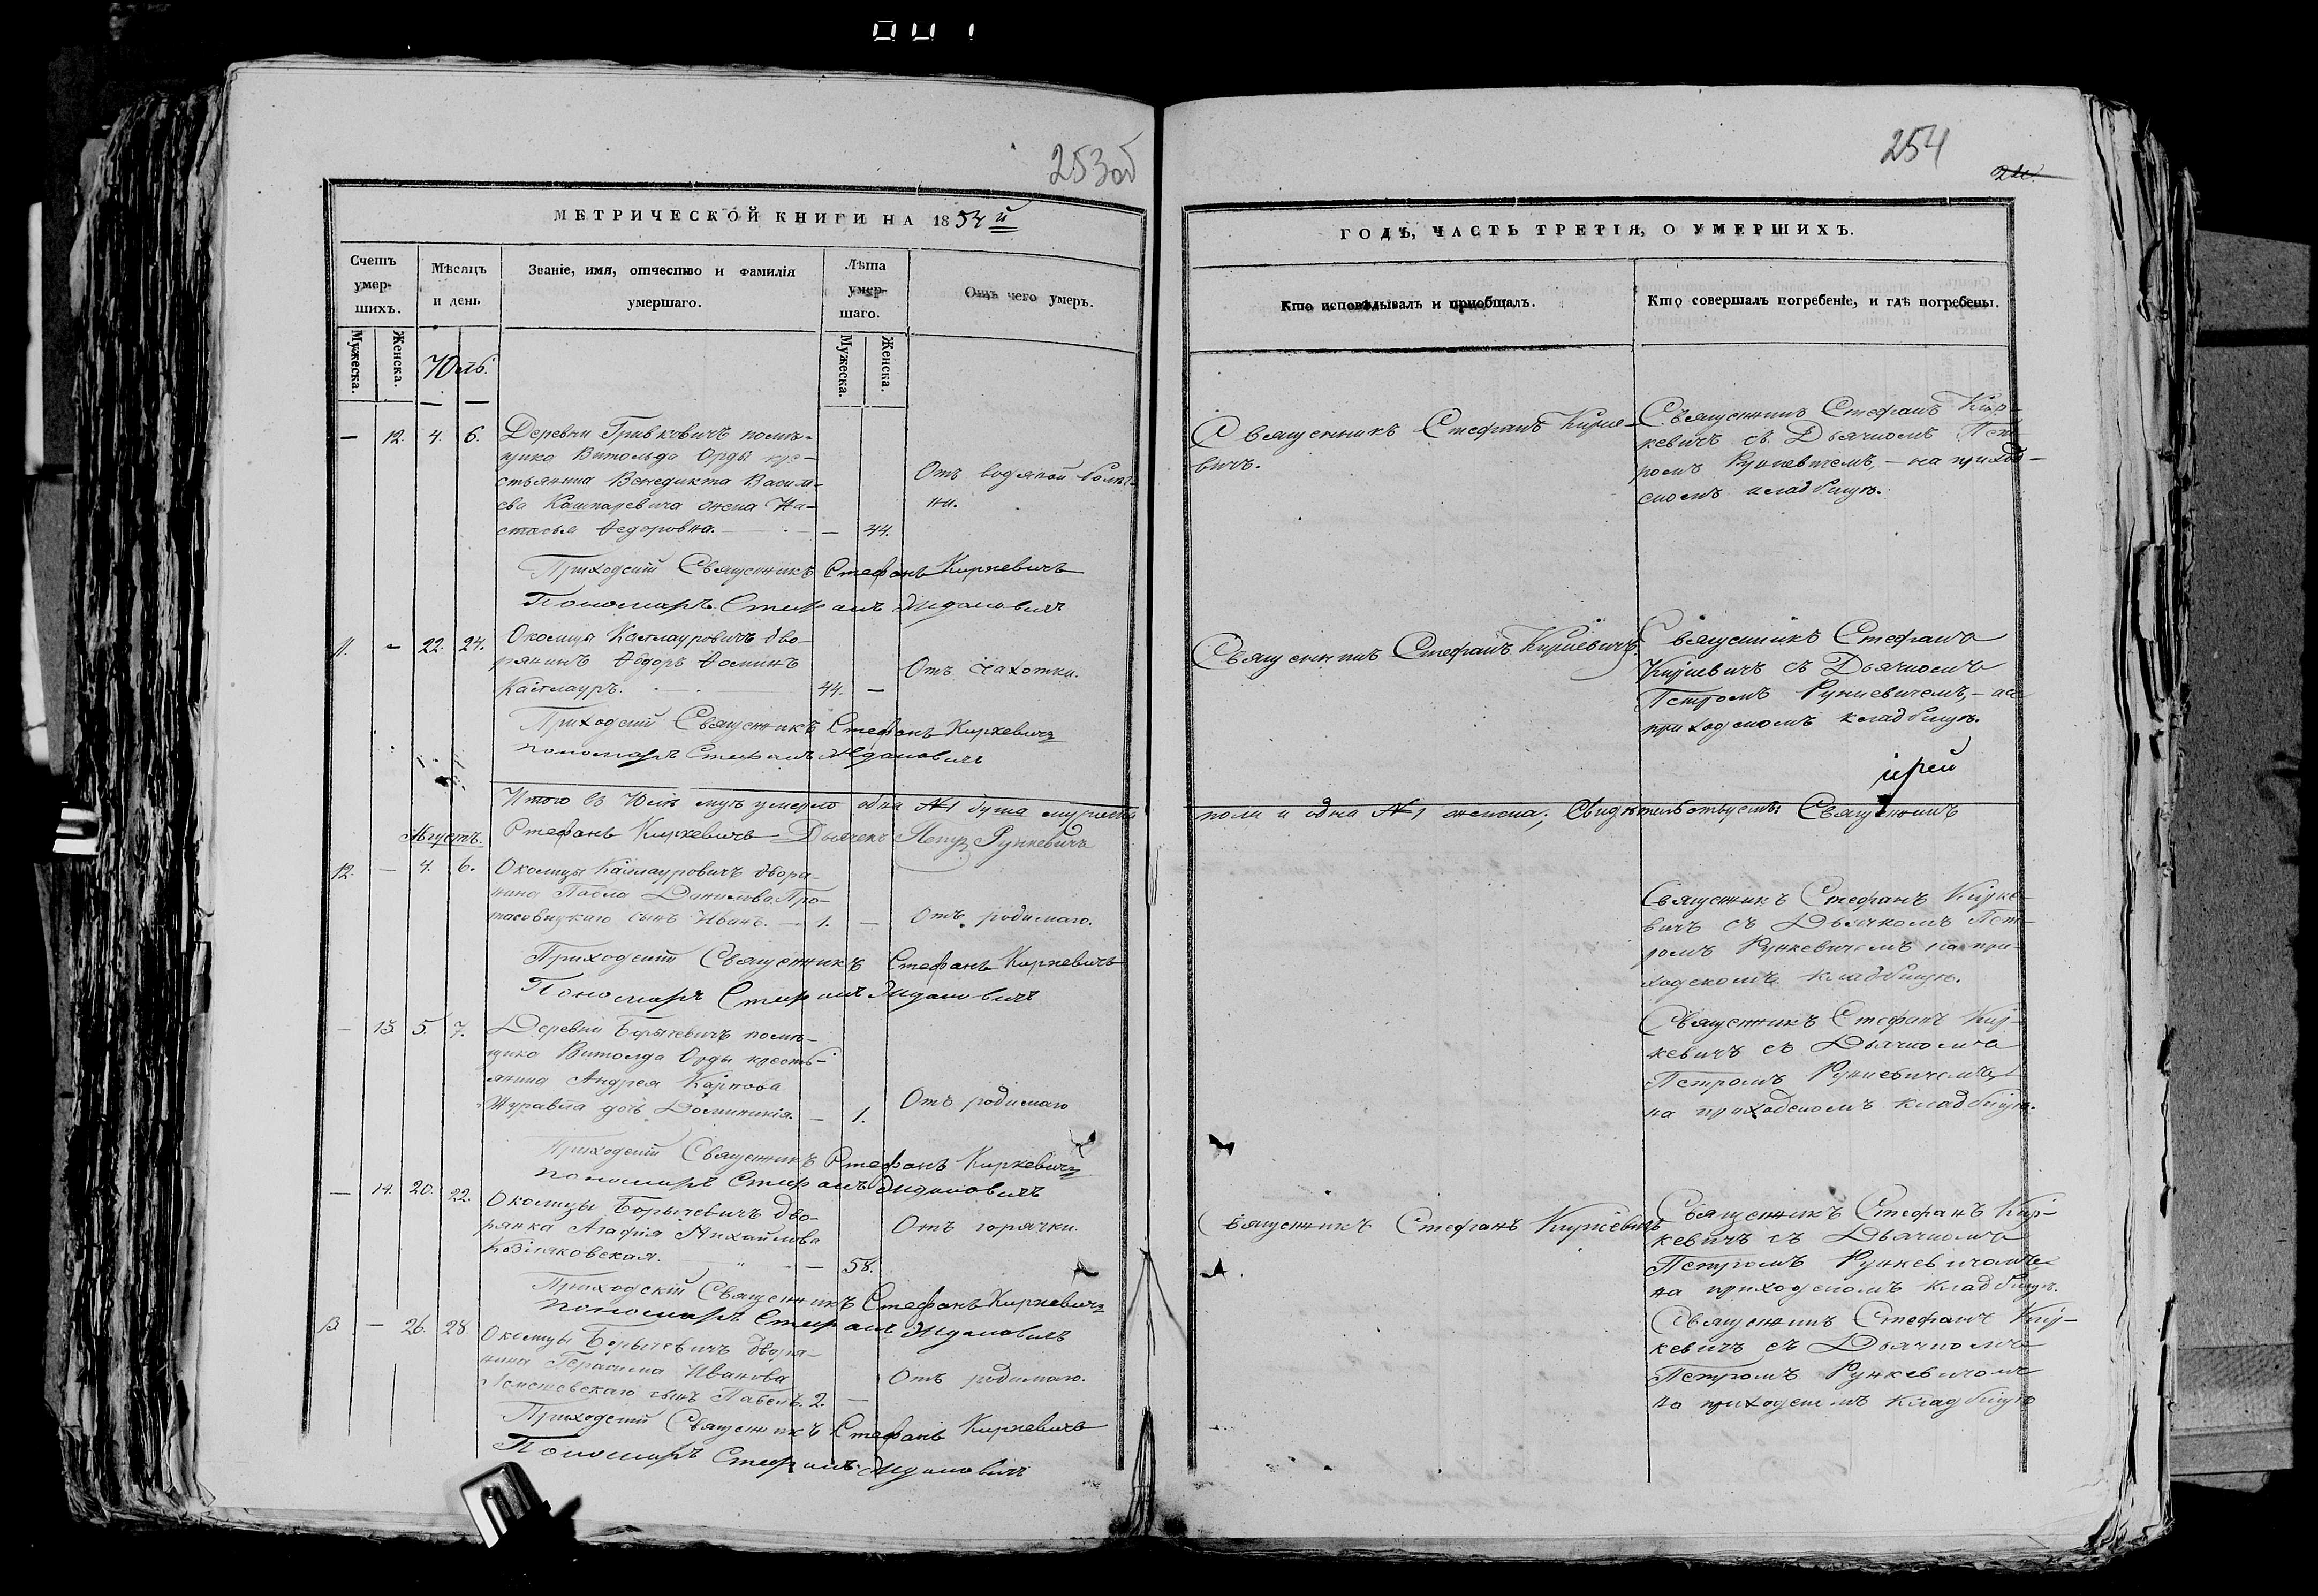 001
253об
МЕТРИЧЕСКОЙ КНИГИ НА 1854й
Счетъ умер- шихъ.
Мѣсяцъ и день
Званіе, имя, отчество и фамилія умершаго.
Лѣта умер- шаго.
Отъ чего умеръ.
Мужеска.
Женска.
Юль.
Мужеска.
Женска.
— 12. 4. 6. Деревни Гривковичъ помѣ-
щика Витольда Орды кре-
стьянина Бенедикта Василь-
ева Кашпаревича жена На-
стасья Ѳедоровна. — 44.
Отъ водяной болѣз-
ни.
Приходскій Священникъ Стефанъ Киркевичъ
Пономарь Стефанъ Ждановичъ
11. — 22. 24. Околицы Кастлауровичъ дво-
рянинъ Ѳедоръ Ѳоминъ
Кастлауръ. 44. —
Отъ чахотки.
Приходскій Священникъ Стефанъ Киркевичъ
пономарь Стефанъ Ждановичъ
Итого въ Юлѣ умерло одна №1 душа мужеска
Стефанъ Киркевичъ Дьячекъ Петръ Рункевичъ
Августъ.
12. — 4. 6. Околицы Кастлауровичъ дворя-
нина Павла Данилова Про-
тасовицкаго сынъ Иванъ. — 1. —
Отъ родимаго.
Приходскій Священникъ Стефанъ Киркевичъ
Пономарь Стефанъ Ждановичъ
— 13. 5. 7. Деревни Борычевичъ помѣ-
щика Витолда Орды кресть-
янина Андрея Карпова
Журавля дочь Доминикія. — 1.
Отъ родимаго
Приходскій Священникъ Стефанъ Киркевичъ
пономарь Стефанъ Ждановичъ
— 14. 20. 22. Околицы Борычевичъ дво-
рянка Агафія Михайлова
Козляковская. — 58.
Отъ горячки.
Приходскій Священникъ Стефанъ Киркевичъ
пономарь Стефанъ Ждановичъ
13 — 26. 28 Околицы Борычевичъ дворя-
нина Герасима Иванова
сынъ Павелъ. 2. —
Отъ родимаго.
Приходскій Священникъ Стефанъ Киркевичъ
Пономарь Стефанъ Ждановичъ
254
ГОДЪ, ЧАСТЬ ТРЕТІЯ, О УМЕРШИХЪ.
Кто исповѣдывалъ и приобщалъ.
Кто совершалъ погребеніе, и гдѣ погребены.
Священникъ Стефанъ Кирке-
вичъ.
Священникъ Стефанъ Кир-
кевичъ съ Дьячкомъ Пет-
ромъ Рункевичемъ, — на приход-
скомъ кладбищѣ.
Священникъ Стефанъ Киркевичъ.
Священникъ Стефанъ
Киркевичъ съ Дьячкомъ
Петромъ Рункевичемъ, — на
приходскомъ кладбищѣ.
іерей
пола и одна №1 женска; Свидѣтельствуемъ: Священникъ
Священникъ Стефанъ Кирке-
вичъ съ Дьячкомъ Пет-
ромъ Рункевичемъ на при-
ходскомъ кладбищѣ.
Священникъ Стефанъ Кир-
кевичъ съ Дьячкомъ
Петромъ Рункевичемъ,
на приходскомъ кладбищѣ.
Священникъ Стефанъ Киркевичъ
Священникъ Стефанъ Кир-
кевичъ съ Дьячкомъ
Петромъ Рункевичемъ
на приходскомъ кладбищѣ.
Священникъ Стефанъ Кир-
кевичъ съ Дьячкомъ
Петромъ Рункевичомъ
на приходскомъ кладбищѣ